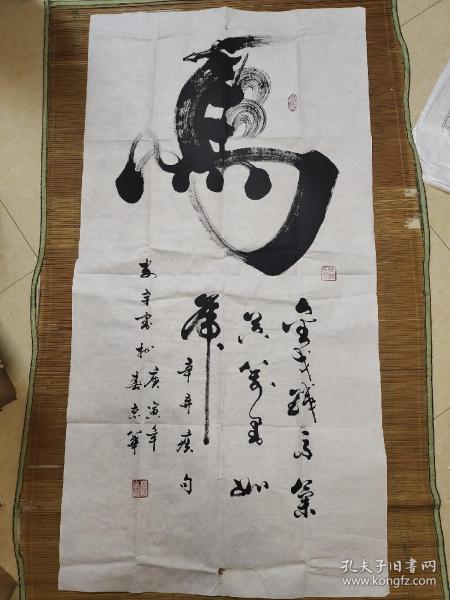 馬
金戈鐵馬氣
吞萬里如
虎
辛弃疾句
庚寅年
春京華
孔夫子旧书网
www.kongfz.com